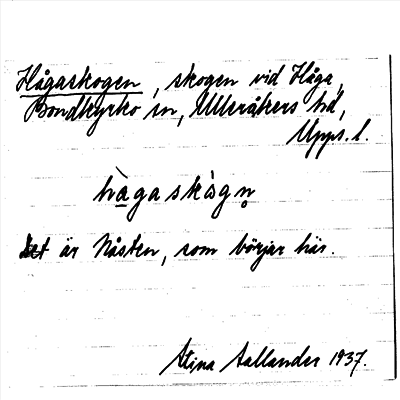 Hågaskogen, skogen vid Håga,
Bondkyrko sn, Ulleråkers hd,
Upps. l.
hågaskògn̥
Det är Nåsten, som börjar här.
Stina Aallander 1937.